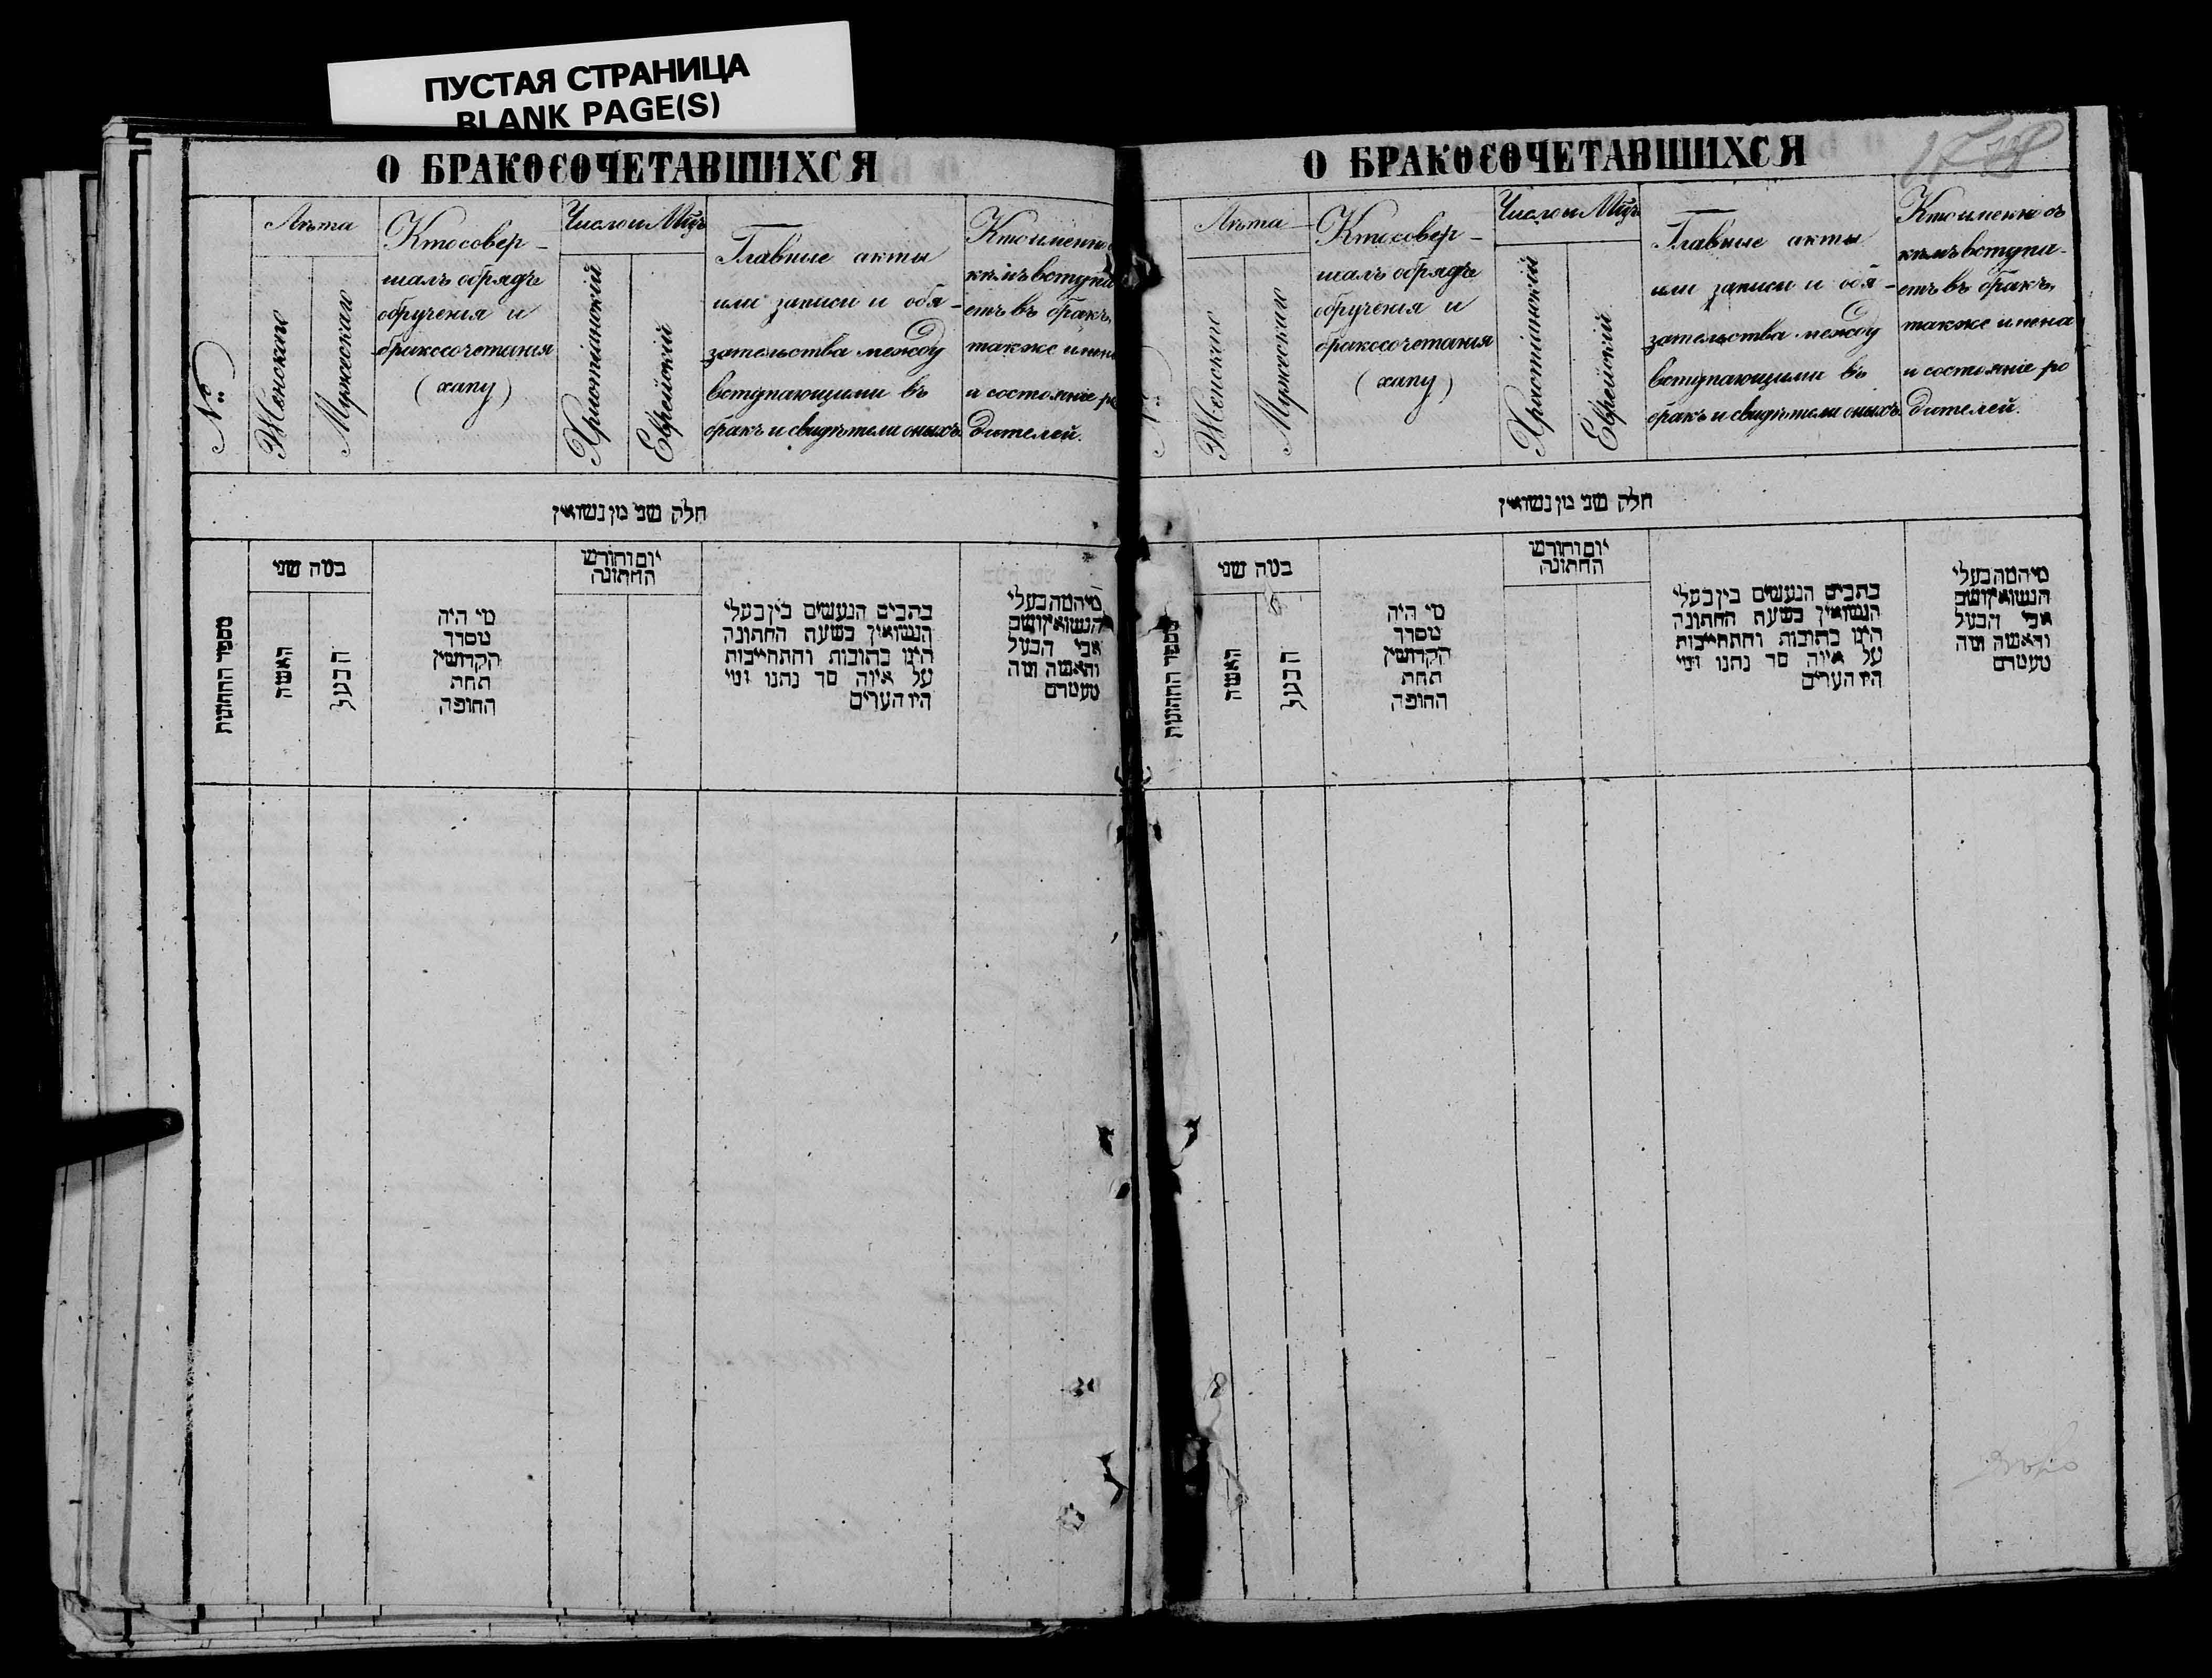 ПУСТАЯ СТРАНИЦА
BLANK PAGE(S)
О БРАКОСОЧЕТАВШИХСЯ
№
Лѣта
Женскаго
Мужескаго
Кто совер-
шалъ обрядъ
обрученія и
бракосочетанія
(хапу)
Число и Мѣць
Христіанскій
Еврейскій
Главные акты
или записи и обя-
зательства между
вступающими въ
бракъ и свидѣтели оныхъ.
Кто именно
кѣмъ вступа
етъ въ бракъ,
также имен
и состояніе р
дителей.
חלק שני מן נשואין
מספר החתונות
במה שני
האשה
הבעל
מי היה
מסדר
הקדושין
תחת
החופה
יום וחודש
החתונה
כתבים הנעשים בין בעלי
הנשואין בשעת החתונה
היינו כתובות והתחייבות
על איזה סך נתנו ומי
היו העדים
מי המה בעלי
הנשואין ושם
אבי הבעל
והאשה ומה
מעמדם
О БРАКОСОЧЕТАВШИХСЯ
№
Лѣта
Женскаго
Мужескаго
Кто совер-
шалъ обрядъ
обрученія и
бракосочетанія
(хапу)
Число и Мѣць
Христіанскій
Еврейскій
Главные акты
или записи и обя-
зательства между
вступающими въ
бракъ и свидѣтели оныхъ.
Кто именно съ
кѣмъ вступа-
етъ въ бракъ,
также имена
и состояніе ро
дителей.
חלק שני מן נשואין
מספר החתונות
במה שני
האשה
הבעל
מי היה
מסדר
הקדושין
תחת
החופה
יום וחודש
החתונה
כתבים הנעשים בין בעלי
הנשואין בשעת החתונה
היינו כתובות והתחייבות
על איזה סך נתנו ומי
היו העדים
מי המה בעלי
הנשואין ושם
אבי הבעל
והאשה ומה
מעמדם